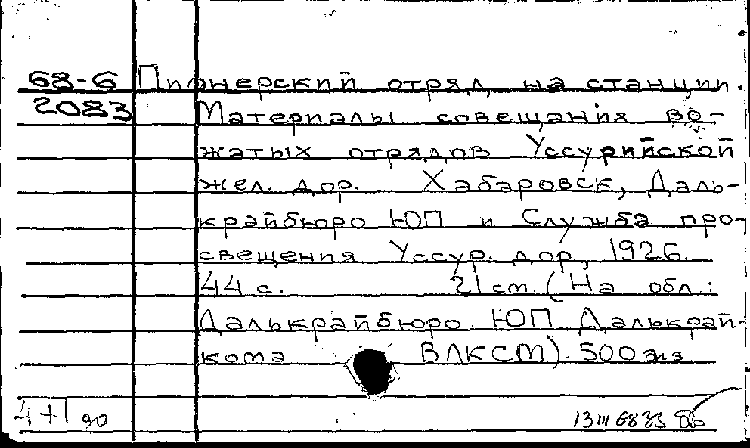 68-6 Пионерский отряд на станции.
2083 Материалы совещания во-
жатых отрядов Уссурийской
жел. дор. Хабаровск, Даль-
крайбюро ЮП и Служба про-
свещения Уссур. дор, 1926.
44 с. 21 см. (На обл.:
Далькрайбюро ЮП Далькрай-
кома ВЛКСМ). 500 экз
4+1 90